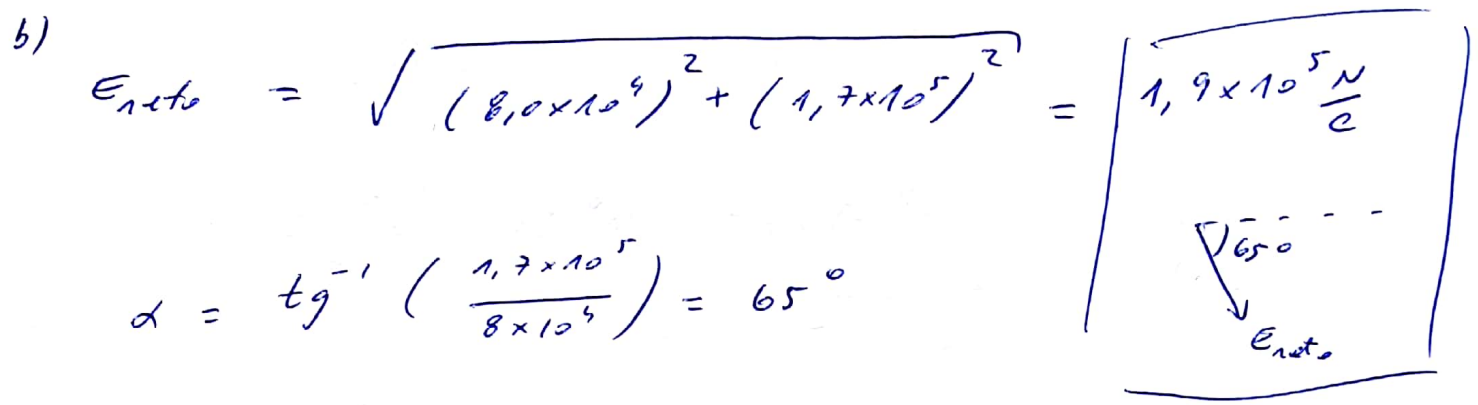 b)
E_neto = √((8,0×10⁴)² + (1,7×10⁵)²) = 1,9×10⁵ N/C
α = tg⁻¹ (1,7×10⁵ / 8×10⁴) = 65°
65°
E_neto